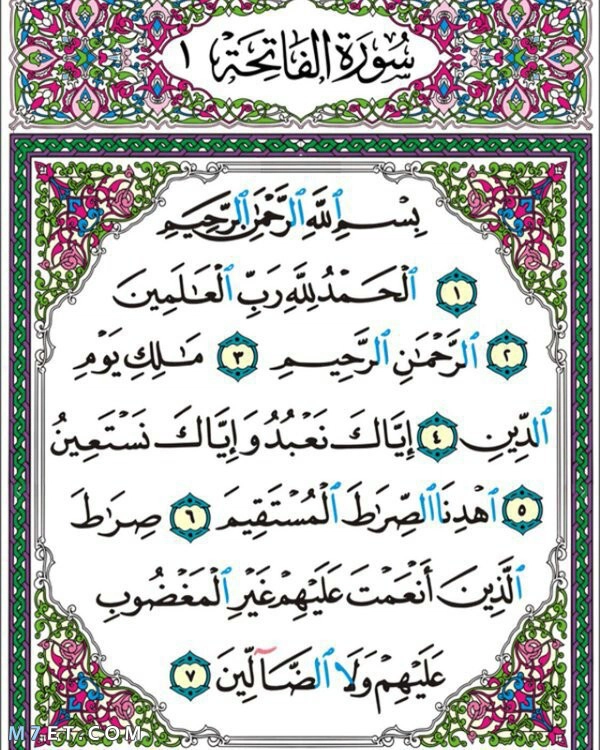 سُورَةُ الفَاتِحَةِ ١
بِسْمِ ٱللَّهِ ٱلرَّحْمَٰنِ ٱلرَّحِيمِ
١ ٱلْحَمْدُ لِلَّهِ رَبِّ ٱلْعَٰلَمِينَ
٢ ٱلرَّحْمَٰنِ ٱلرَّحِيمِ ٣ مَٰلِكِ يَوْمِ
ٱلدِّينِ ٤ إِيَّاكَ نَعْبُدُ وَإِيَّاكَ نَسْتَعِينُ
٥ ٱهْدِنَا ٱلصِّرَٰطَ ٱلْمُسْتَقِيمَ ٦ صِرَٰطَ
ٱلَّذِينَ أَنْعَمْتَ عَلَيْهِمْ غَيْرِ ٱلْمَغْضُوبِ
عَلَيْهِمْ وَلَا ٱلضَّآلِّينَ ٧
M7ET.COM